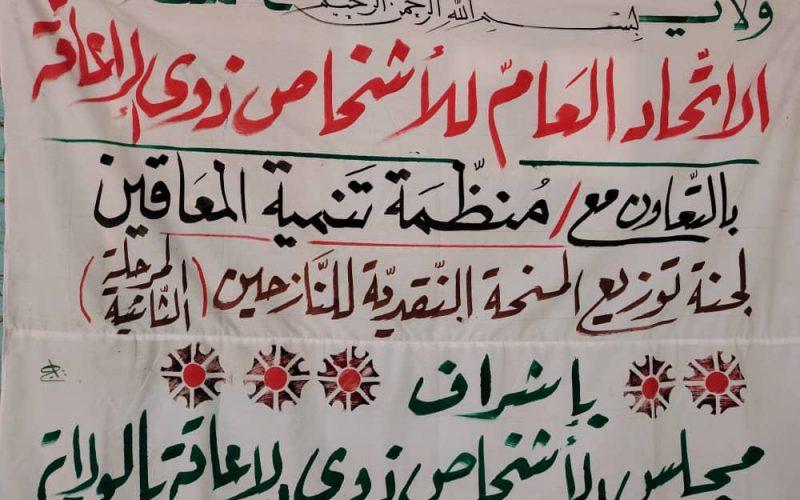 بسم الله الرحمن الرحيم
الاتّحاد العامّ للأشخاص ذوي الإعاقة
بالتّعاون مع / مُنظّمَة تَنمية المعَاقين
لجنة توزيع المنحة النّقديّة للنَّازحين (المرحلة الثّانية)
بإشراف
مجلس الأشخاص ذوي الإعاقة بالولاية